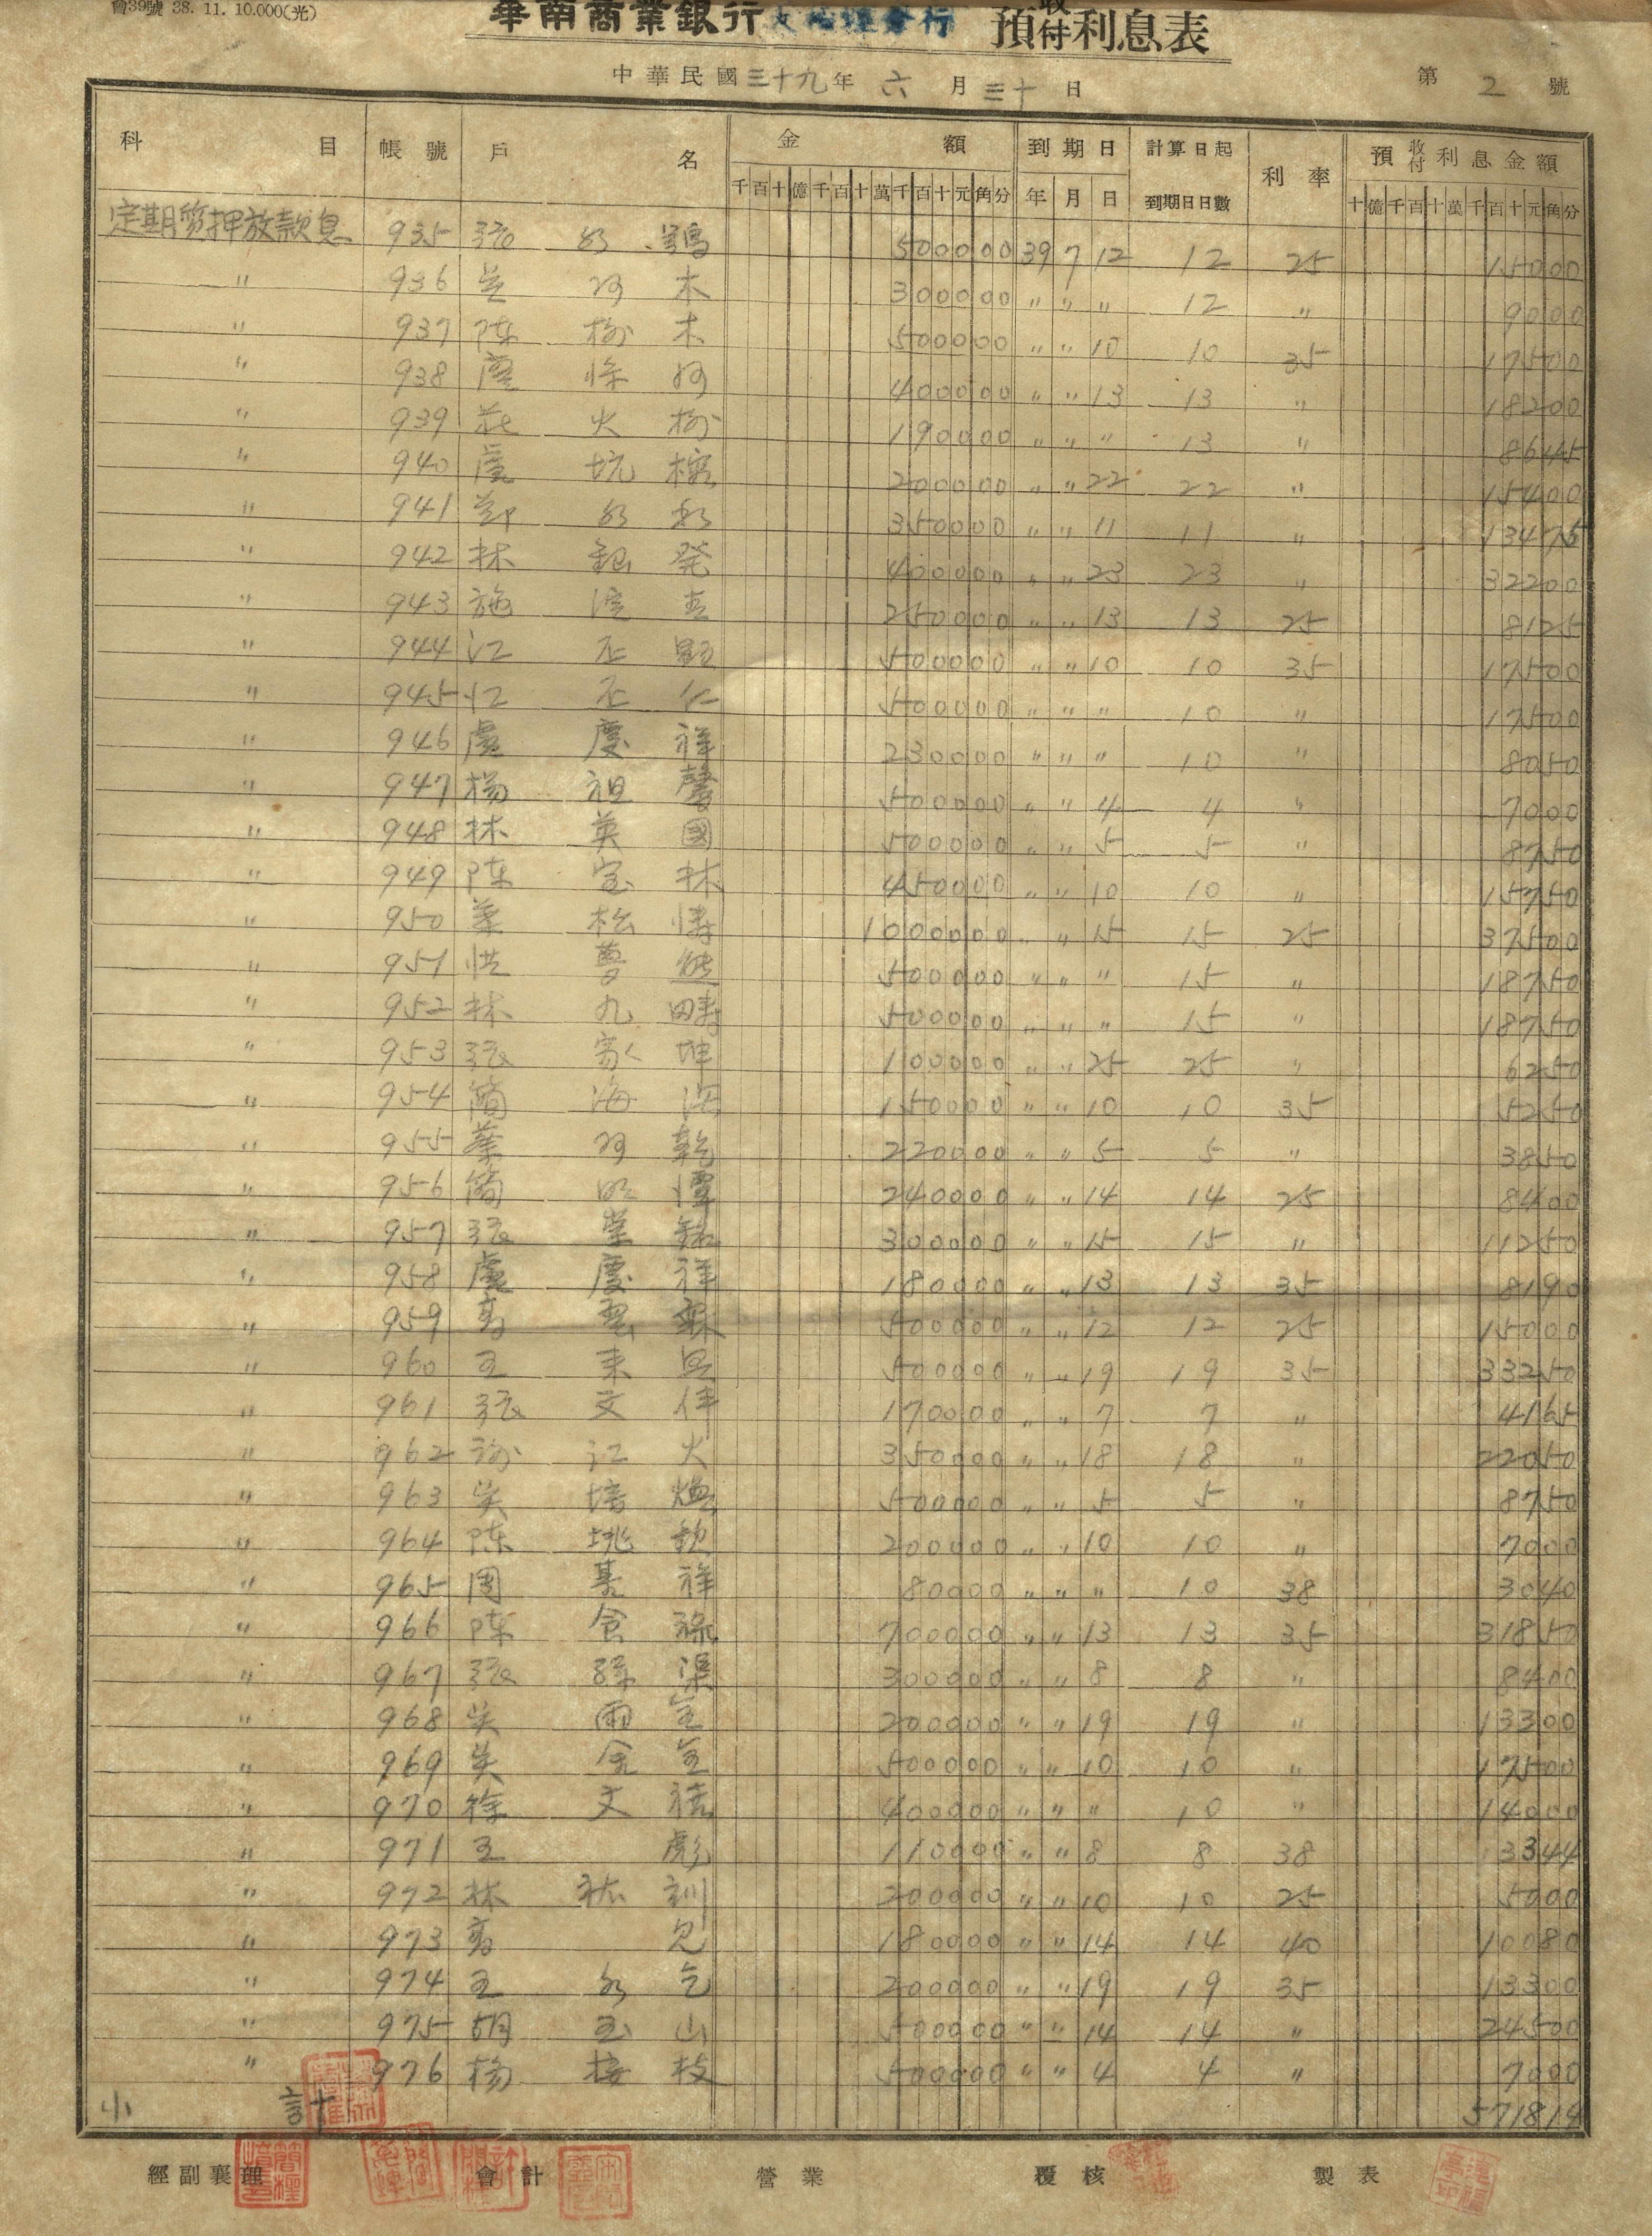 會39號 38. 11. 10.000(光)
華南商業銀行 預收付利息表
中華民國三十九年 六月三十日 第2號
科目 帳號 戶名 金額 到期日 計算日起到期日日數 利率 預收付利息金額
千百十億千百十萬千百十元角分 年月日 十億千百十萬千百十元角分
定期質押放款息 935 張 500000 39 7 12 12 25 15000
〃 936 木 300000 〃 〃 〃 12 〃 9000
〃 937 陳樹木 500000 〃 〃 10 10 35 17500
〃 938 盧 400000 〃 〃 13 13 〃 18200
〃 939 莊火樹 190000 〃 〃 〃 13 〃 8645
〃 940 盧坑 200000 〃 〃 22 22 〃 15400
〃 941 鄭水 350000 〃 〃 11 11 〃 13475
〃 942 林 發 400000 〃 〃 23 23 〃 32200
〃 943 施 250000 〃 〃 13 13 25 8125
〃 944 江丕 500000 〃 〃 10 10 35 17500
〃 945 江丕仁 500000 〃 〃 〃 10 〃 17500
〃 946 盧慶祥 230000 〃 〃 〃 10 〃 8050
〃 947 楊祖馨 500000 〃 〃 4 4 〃 7000
〃 948 林英國 500000 〃 〃 5 5 〃 8750
〃 949 陳宝林 450000 〃 〃 10 10 〃 15750
〃 950 葉松濤 1000000 〃 〃 15 15 25 37500
〃 951 洪夢熊 500000 〃 〃 〃 15 〃 18750
〃 952 林九疇 500000 〃 〃 〃 15 〃 18750
〃 953 張家坤 100000 〃 〃 25 25 〃 6250
〃 954 簡海 150000 〃 〃 10 10 35 5250
〃 955 葉阿乾 220000 〃 〃 5 5 〃 3850
〃 956 簡 潭 240000 〃 〃 14 14 25 8400
〃 957 張 銘 300000 〃 〃 15 15 〃 11250
〃 958 盧慶祥 180000 〃 〃 13 13 35 8190
〃 959 高 500000 〃 〃 12 12 25 15000
〃 960 王来 500000 〃 〃 19 19 35 33250
〃 961 張文伴 170000 〃 〃 7 7 〃 4165
〃 962 江火 350000 〃 〃 18 18 〃 22050
〃 963 吳 500000 〃 〃 5 5 〃 8750
〃 964 陳 欽 200000 〃 〃 10 10 〃 7000
〃 965 周基祥 80000 〃 〃 〃 10 38 3040
〃 966 陳食祿 700000 〃 〃 13 13 35 31850
〃 967 張 渠 300000 〃 〃 8 8 〃 8400
〃 968 吳雨全 200000 〃 〃 19 19 〃 13300
〃 969 吳金全 500000 〃 〃 10 10 〃 17500
〃 970 徐文禧 400000 〃 〃 〃 10 〃 14000
〃 971 王彪 110000 〃 〃 8 8 38 3344
〃 972 林 訓 200000 〃 〃 10 10 25 5000
〃 973 高 180000 〃 〃 14 14 40 10080
〃 974 王水 200000 〃 〃 19 19 35 13300
〃 975 胡玉山 500000 〃 〃 14 14 〃 24500
〃 976 楊接枝 500000 〃 〃 4 4 〃 7000
小計 571814
經副襄理 會計 營業 覆核 製表